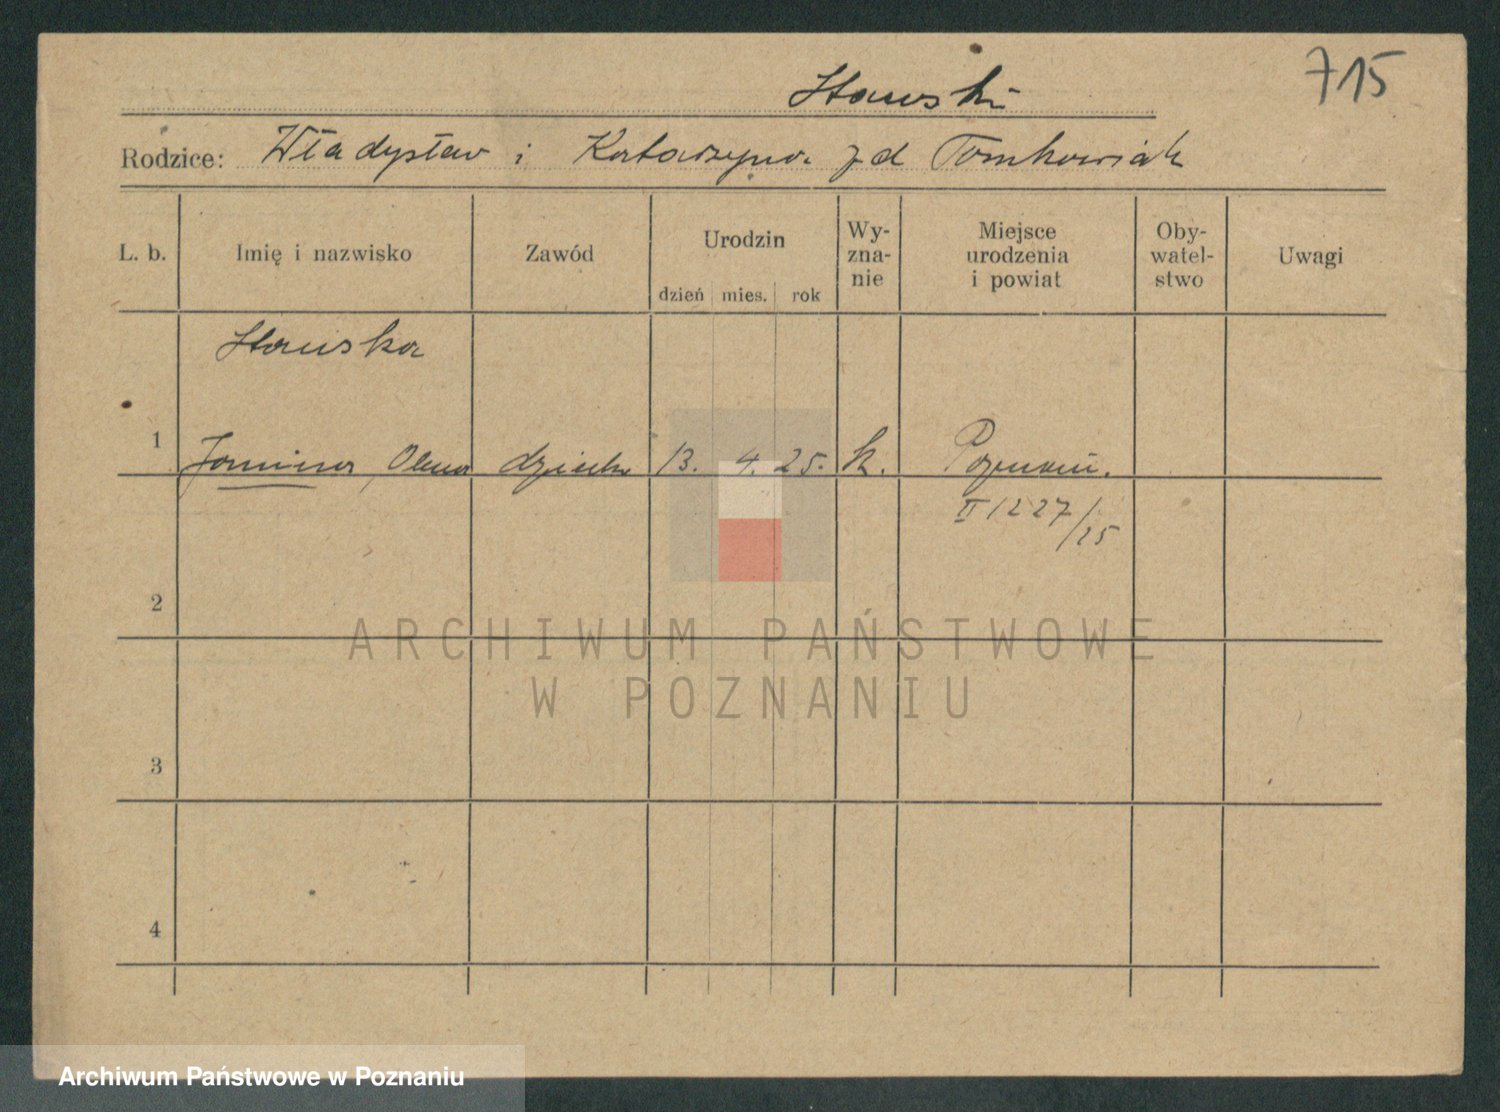 715
Stawski
Rodzice: Władysław i Katarzyna zd Tomkowiak
L. b. Imię i nazwisko Zawód Urodzin dzień mies. rok Wy-zna-nie Miejsce urodzenia i powiat Oby-watel-stwo Uwagi
Stawska
1 Janina, dziecko 13. 4. 25. k. Poznań.
II 1227/25
2
ARCHIWUM PAŃSTWOWE
W POZNANIU
3
4
Archiwum Państwowe w Poznaniu